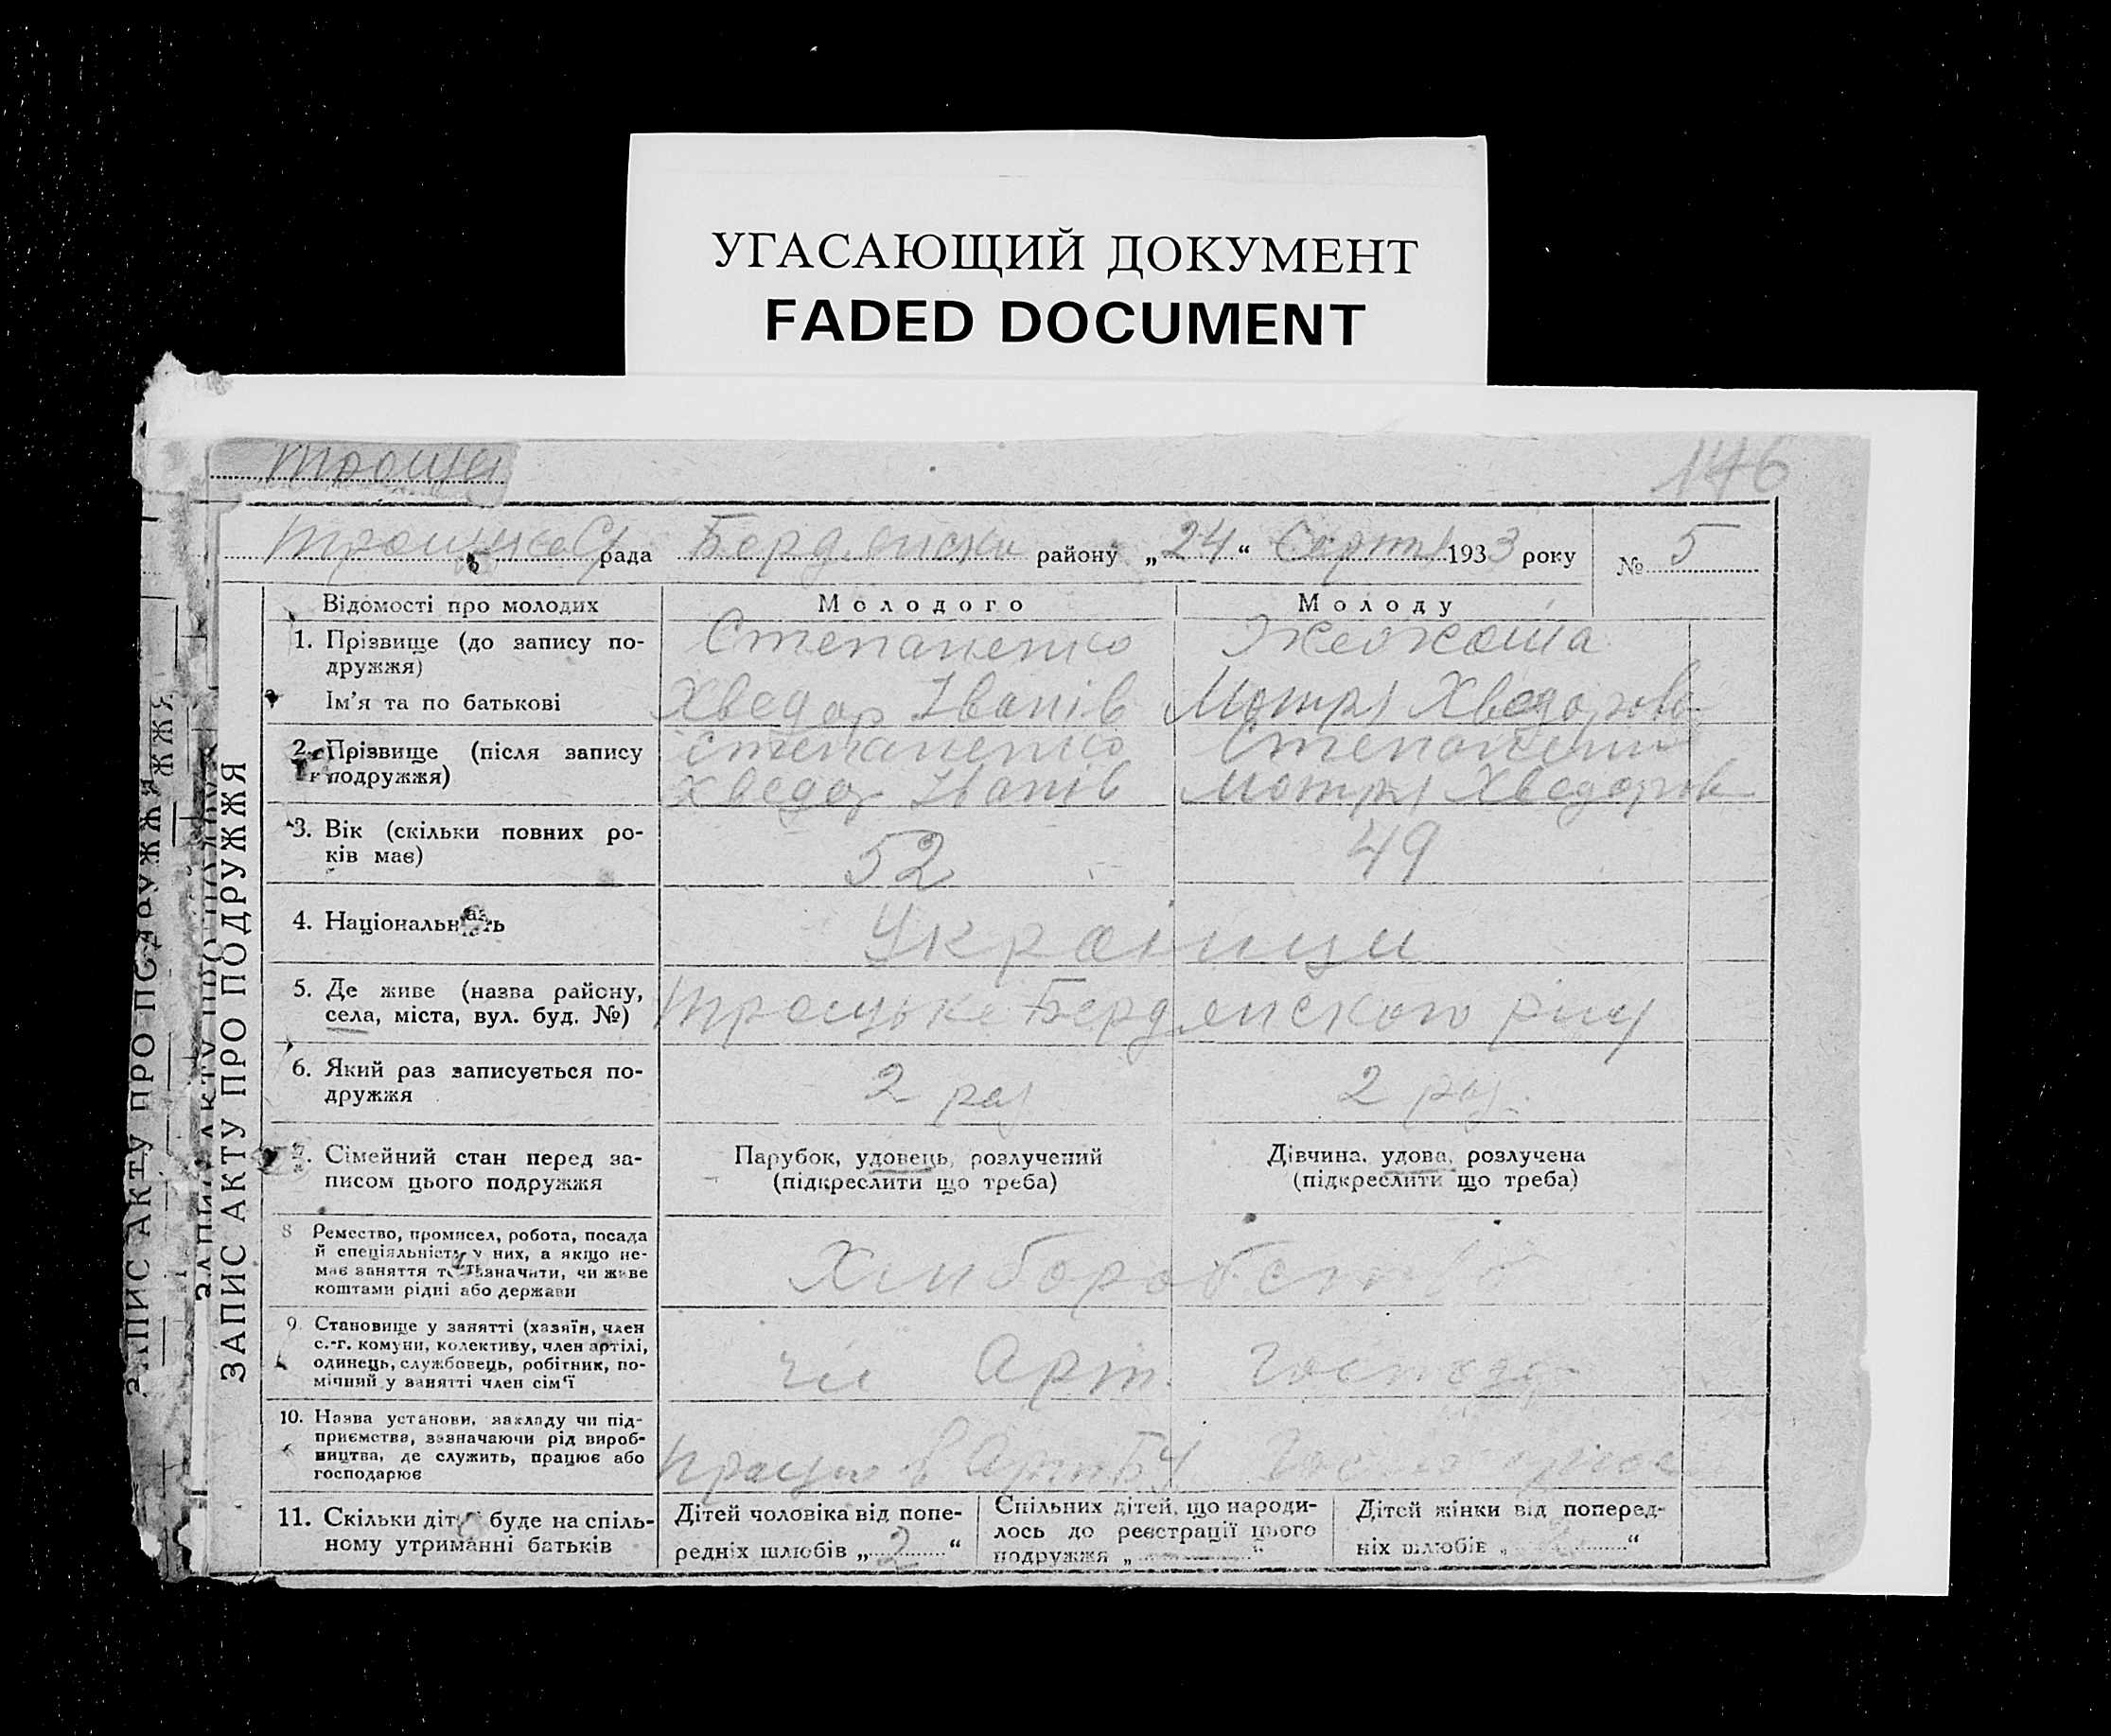 УГАСАЮЩИЙ ДОКУМЕНТ
FADED DOCUMENT
146
рада Бердянски району „24“ Серпня 1933 року № 5
ЗАПИС АКТУ ПРО ПОДРУЖЖЯ
Відомості про молодих Молодого Молоду
1. Прізвище (до запису по-
дружжя)
Степаненко
Ім'я та по батькові
Хведор Іванів Мотря Хведоров
2. Прізвище (після запису
подружжя)
Степаненко Степаненко
Хведор Іванів Мотря Хведоров
3. Вік (скільки повних ро-
ків має)
52 49
4. Національність
Українци
5. Де живе (назва району,
села, міста, вул. буд. №)
Троцьке Бердянского
6. Який раз записується по-
дружжя
2 раз 2 раз
7. Сімейний стан перед за-
писом цього подружжя
Парубок, удовець, розлучений
(підкреслити що треба)
Дівчина, удова, розлучена
(підкреслити що треба)
8 Ремество, промисел, робота, посада
й спеціяльність у них, а якщо не-
має заняття то зазначити, чи живе
коштами рідні або держави
Хліборобство
9. Становище у занятті (хазяїн, член
с.-г. комуни, колективу, член артілі,
одинець, службовець, робітник, по-
мічний у занятті член сім'ї
чл Арт.
10. Назва установи, закладу чи під-
приємства, зазначаючи рід вироб-
ництва, де служить, працює або
господарює
Працює в
11. Скільки дітей буде на спіль-
ному утриманні батьків
Дітей чоловіка від попе-
редніх шлюбів „2“
Спільних дітей, що народи-
лось до реєстрації цього
подружжя „ “
Дітей жінки від поперед-
ніх шлюбів „ “